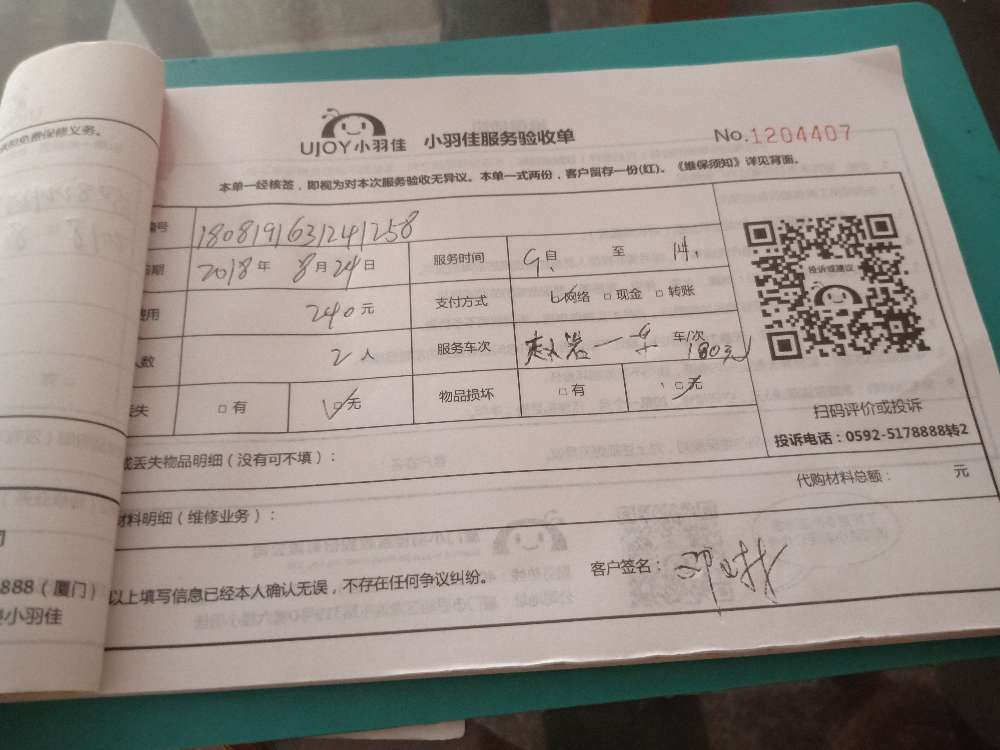 免费保修义务。
UJOY小羽佳 小羽佳服务验收单 No.1204407
本单一经核签，即视为对本次服务验收无异议。本单一式两份，客户留存一份(红)。《维保须知》详见背面。
编号 1808191631241258
日期 2018年 8月24日 服务时间 9 自 至 14
费用 240元 支付方式 □网络 □现金 □转账
人数 2人 服务车次 一 车/次 180元
丢失 □有 □无 物品损坏 □有 □无
投诉或建议
扫码评价或投诉
投诉电话：0592-5178888转2
或丢失物品明细（没有可不填）：
代购材料总额： 元
材料明细（维修业务）：
以上填写信息已经本人确认无误，不存在任何争议纠纷。 客户签名：
888（厦门）
小羽佳